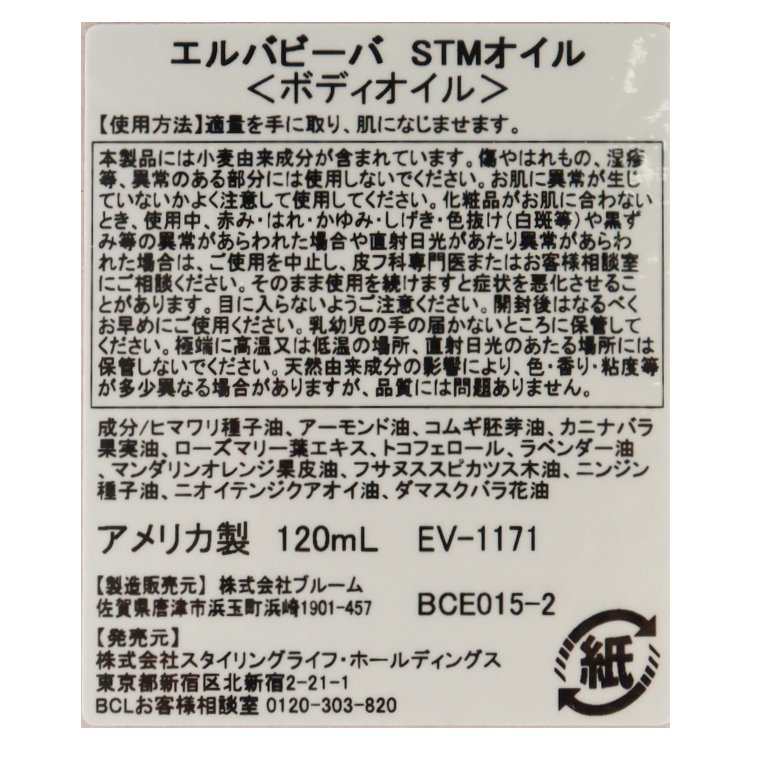 エルバビーバ STMオイル
<ボディオイル>
【使用方法】適量を手に取り、肌になじませます。
本製品には小麦由来成分が含まれています。傷やはれもの、湿疹
等、異常のある部分には使用しないでください。お肌に異常が生じ
ていないかよく注意して使用してください。化粧品がお肌に合わない
とき、使用中、赤み・はれ・かゆみ・しげき・色抜け(白斑等)や黒ず
み等の異常があらわれた場合や直射日光があたり異常があらわ
れた場合は、ご使用を中止し、皮フ科専門医またはお客様相談室
にご相談ください。そのまま使用を続けますと症状を悪化させるこ
とがあります。目に入らないようご注意ください。開封後はなるべく
お早めにご使用ください。乳幼児の手の届かないところに保管して
ください。極端に高温又は低温の場所、直射日光のあたる場所には
保管しないでください。天然由来成分の影響により、色・香り・粘度等
が多少異なる場合がありますが、品質には問題ありません。
成分/ヒマワリ種子油、アーモンド油、コムギ胚芽油、カニナバラ
果実油、ローズマリー葉エキス、トコフェロール、ラベンダー油
、マンダリンオレンジ果皮油、フサヌススピカツス木油、ニンジン
種子油、ニオイテンジクアオイ油、ダマスクバラ花油
アメリカ製 120mL EV-1171
【製造販売元】 株式会社ブルーム
佐賀県唐津市浜玉町浜崎1901-457 BCE015-2
【発売元】
株式会社スタイリングライフ・ホールディングス
東京都新宿区北新宿2-21-1
BCLお客様相談室 0120-303-820
紙